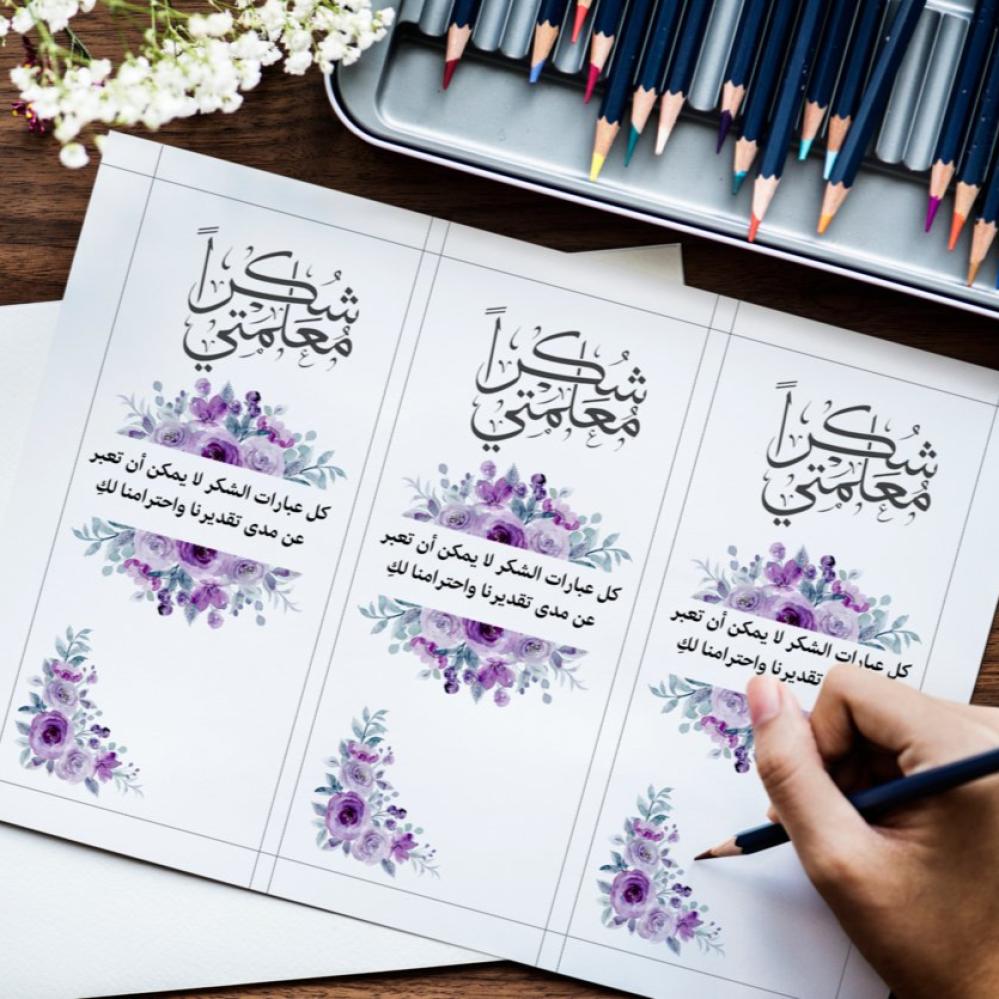 شُكراً
مُعَلمَتي
كل عبارات الشكر لا يمكن أن تعبر
عن مدى تقديرنا واحترامنا لكِ
شُكراً
مُعَلمَتي
كل عبارات الشكر لا يمكن أن تعبر
عن مدى تقديرنا واحترامنا لكِ
شُكراً
مُعَلمَتي
كل عبارات الشكر لا يمكن أن تعبر
تقديرنا واحترامنا لكِ